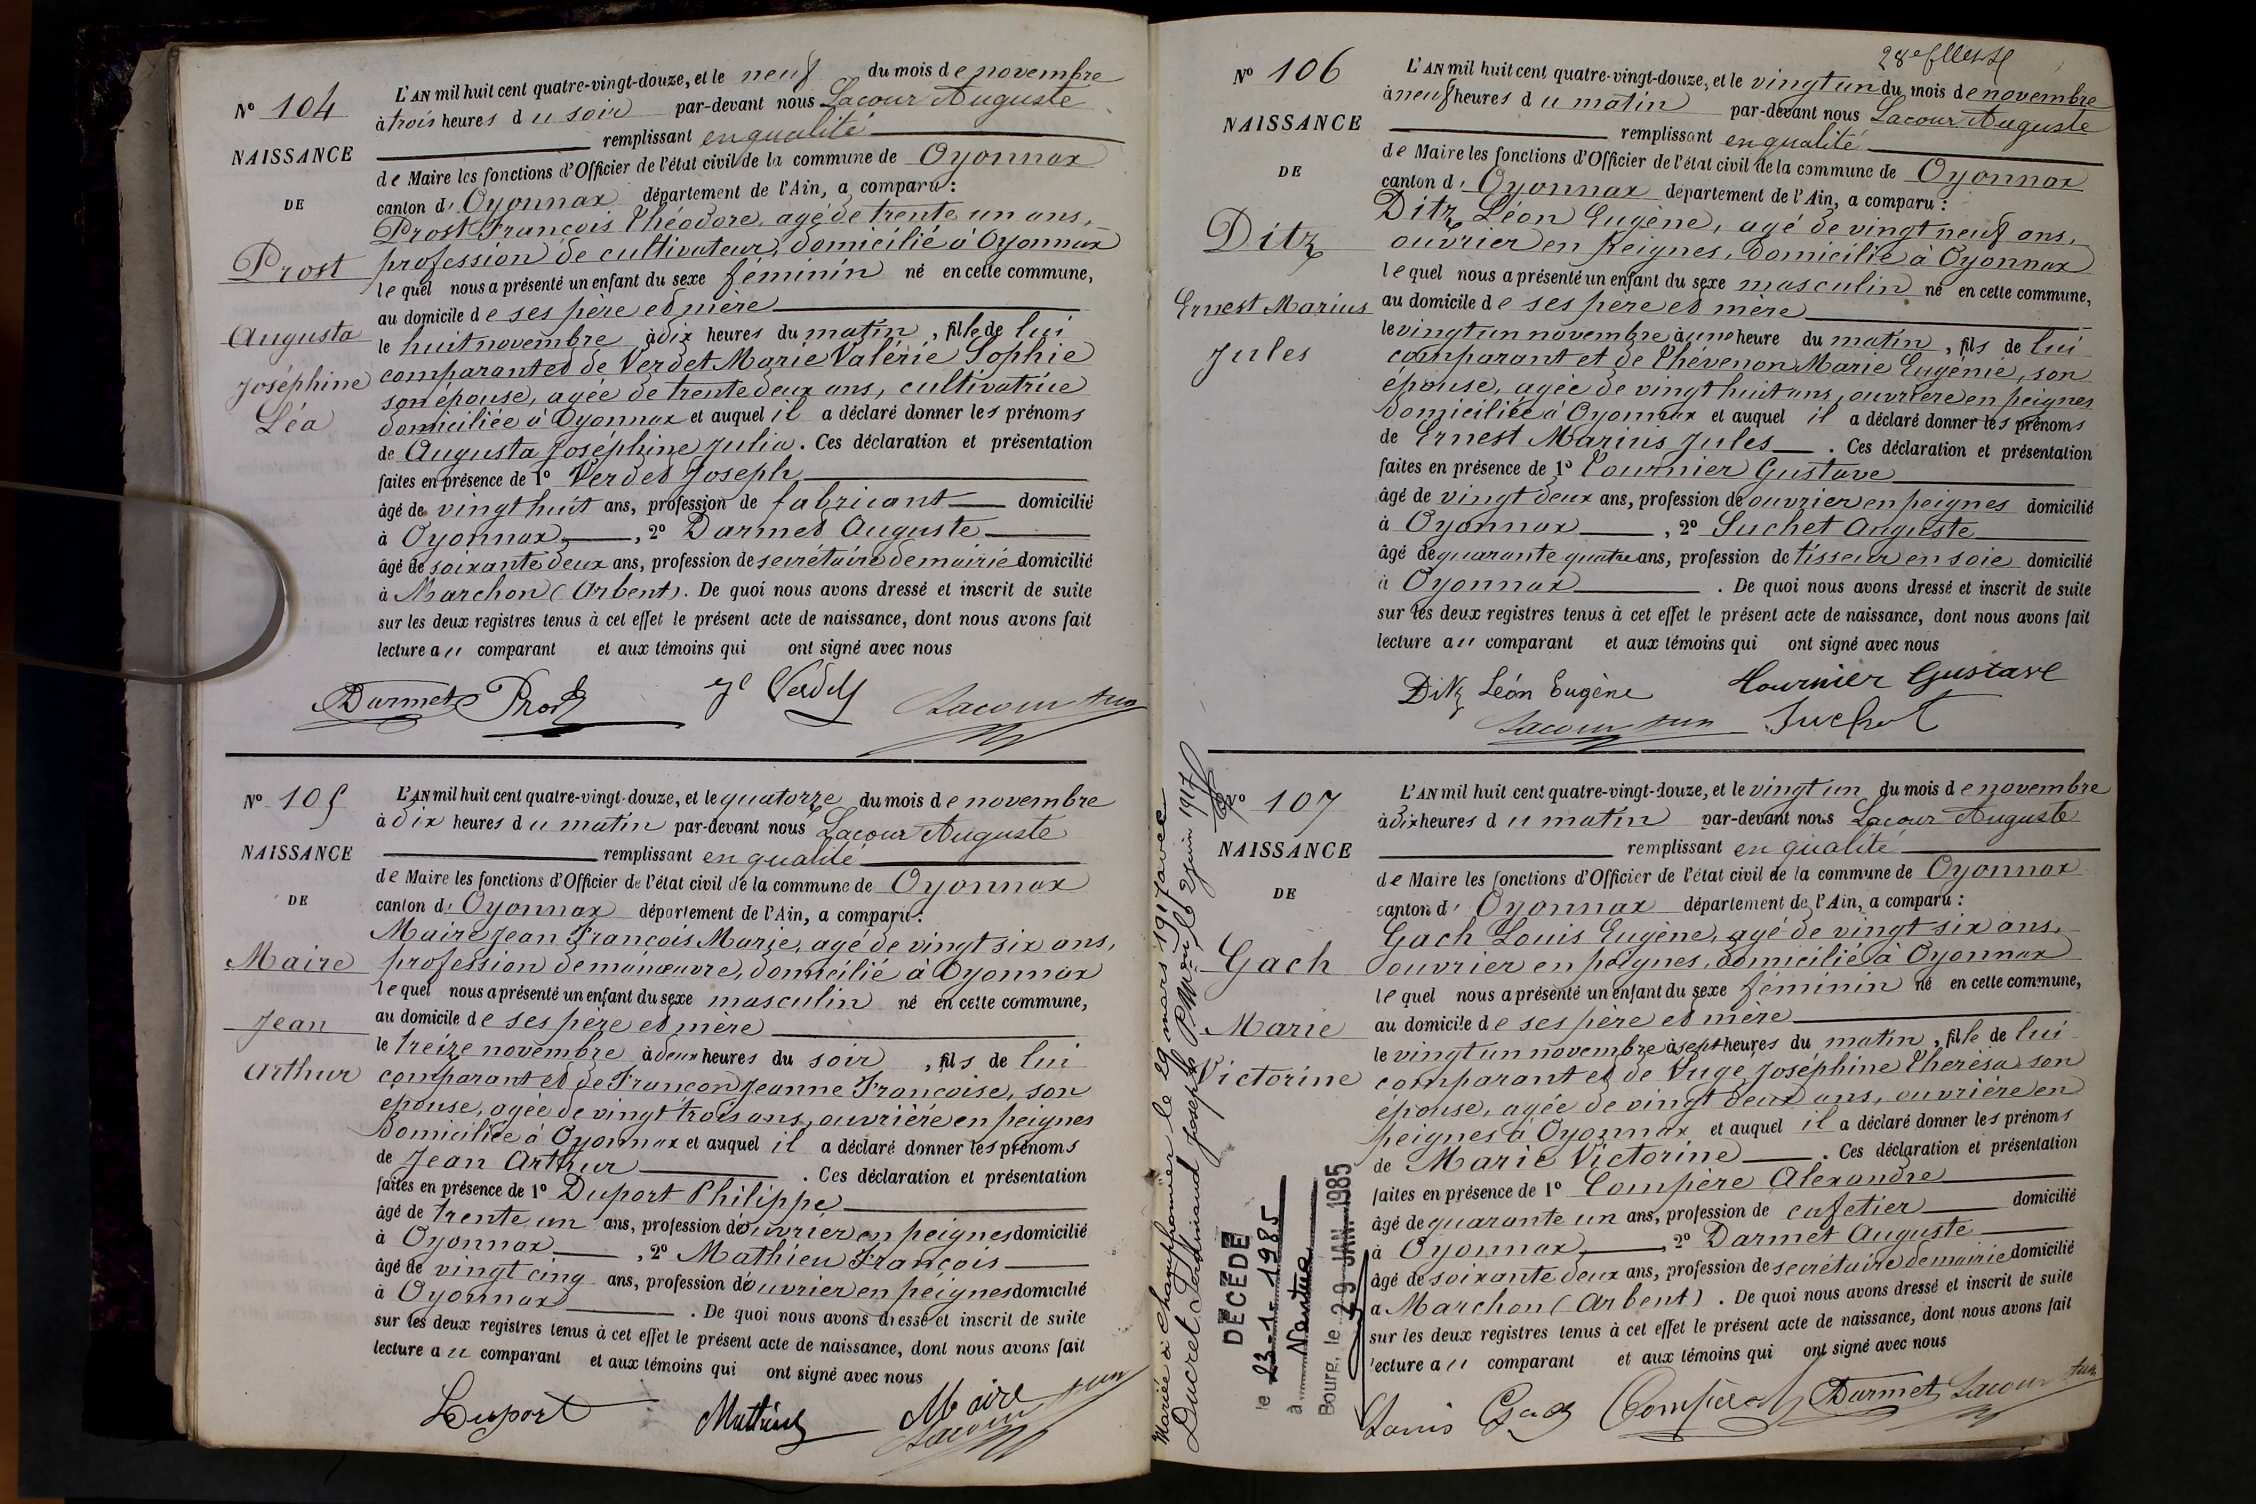 N° 104
NAISSANCE
DE
Prost
Augusta
Joséphine
Léa
L'AN mil huit cent quatre-vingt-douze, et le neuf du mois de novembre
à trois heures du soir par-devant nous Lacour Auguste
remplissant en qualité
de Maire les fonctions d'Officier de l'état civil de la commune de Oyonnax
canton d' Oyonnax département de l'Ain, a comparu :
Prost François Théodore, agé de trente un ans,
profession de cultivateur, domicilié à Oyonnax
lequel nous a présenté un enfant du sexe féminin né en cette commune,
au domicile de ses père et mère
le huit novembre à dix heures du matin, fille de lui
comparant et de Verdet Marie Valérie Sophie
son épouse, agée de trente deux ans, cultivatrice
domiciliée à Oyonnax et auquel il a déclaré donner les prénoms
de Augusta Joséphine Julia. Ces déclaration et présentation
faites en présence de 1° Verdet Joseph
âgé de vingt huit ans, profession de fabricant domicilié
à Oyonnax, 2° Darmet Auguste
âgé de soixante deux ans, profession de secrétaire de mairie domicilié
à Marchon (Arbent). De quoi nous avons dressé et inscrit de suite
sur les deux registres tenus à cet effet le présent acte de naissance, dont nous avons fait
lecture au comparant et aux témoins qui ont signé avec nous
Darmet Prost Jh Verdet Lacour
N° 105
NAISSANCE
DE
Maire
Jean
Arthur
L'AN mil huit cent quatre-vingt-douze, et le quatorze du mois de novembre
à dix heures du matin par-devant nous Lacour Auguste
remplissant en qualité
de Maire les fonctions d'Officier de l'état civil de la commune de Oyonnax
canton d' Oyonnax département de l'Ain, a comparu :
Maire Jean François Marie, agé de vingt six ans,
profession de manœuvre, domicilié à Oyonnax
lequel nous a présenté un enfant du sexe masculin né en cette commune,
au domicile de ses père et mère
le treize novembre à deux heures du soir, fils de lui
comparant et de Françon Jeanne Françoise, son
épouse, agée de vingt trois ans, ouvrière en peignes
domiciliée à Oyonnax et auquel il a déclaré donner les prénoms
de Jean Arthur. Ces déclaration et présentation
faites en présence de 1° Duport Philippe
âgé de trente un ans, profession d'ouvrier en peignes domicilié
à Oyonnax, 2° Mathieu François
âgé de vingt cinq ans, profession d'ouvrier en peignes domicilié
à Oyonnax. De quoi nous avons dressé et inscrit de suite
sur les deux registres tenus à cet effet le présent acte de naissance, dont nous avons fait
lecture au comparant et aux témoins qui ont signé avec nous
Duport Mathieu Maire
Lacour
N° 106
NAISSANCE
DE
Ditz
Ernest Marius
Jules
L'AN mil huit cent quatre-vingt-douze, et le vingt un du mois de novembre
à neuf heures du matin par-devant nous Lacour Auguste
remplissant en qualité
de Maire les fonctions d'Officier de l'état civil de la commune de Oyonnax
canton d' Oyonnax département de l'Ain, a comparu :
Ditz Léon Eugène, agé de vingt neuf ans,
ouvrier en peignes, domicilié à Oyonnax
lequel nous a présenté un enfant du sexe masculin né en cette commune,
au domicile de ses père et mère
le vingt un novembre à une heure du matin, fils de lui
comparant et de Thévenon Marie Eugénie, son
épouse, agée de vingt huit ans, ouvrière en peignes
domiciliée à Oyonnax et auquel il a déclaré donner les prénoms
de Ernest Marius Jules. Ces déclaration et présentation
faites en présence de 1° Tournier Gustave
âgé de vingt deux ans, profession de ouvrier en peignes domicilié
à Oyonnax, 2° Suchet Auguste
âgé de quarante quatre ans, profession de tisseur en soie domicilié
à Oyonnax. De quoi nous avons dressé et inscrit de suite
sur les deux registres tenus à cet effet le présent acte de naissance, dont nous avons fait
lecture au comparant et aux témoins qui ont signé avec nous
Ditz Léon Eugène Tournier Gustave
Lacour Suchet
N° 107
NAISSANCE
DE
Gach
Marie
Victorine
Mariée à Champfromier le 29 mars 1917 avec
Ducret Ferdinand Joseph
2 juin 1917
DÉCÉDÉ
le 23-1-1985
à Nantua
Bourg, le 29 JAN. 1985
L'AN mil huit cent quatre-vingt-douze, et le vingt un du mois de novembre
à dix heures du matin par-devant nous Lacour Auguste
remplissant en qualité
de Maire les fonctions d'Officier de l'état civil de la commune de Oyonnax
canton d' Oyonnax département de l'Ain, a comparu :
Gach Louis Eugène, agé de vingt six ans,
ouvrier en peignes, domicilié à Oyonnax
lequel nous a présenté un enfant du sexe féminin né en cette commune,
au domicile de ses père et mère
le vingt un novembre à sept heures du matin, fille de lui
comparant et de Vugé Joséphine Thérésa son
épouse, agée de vingt deux ans, ouvrière en
peignes à Oyonnax et auquel il a déclaré donner les prénoms
de Marie Victorine. Ces déclaration et présentation
faites en présence de 1° Compère Alexandre
âgé de quarante un ans, profession de cafetier domicilié
à Oyonnax, 2° Darmet Auguste
âgé de soixante deux ans, profession de secrétaire de mairie domicilié
à Marchon (Arbent). De quoi nous avons dressé et inscrit de suite
sur les deux registres tenus à cet effet le présent acte de naissance, dont nous avons fait
lecture au comparant et aux témoins qui ont signé avec nous
Louis Gach Compère Darmet Lacour